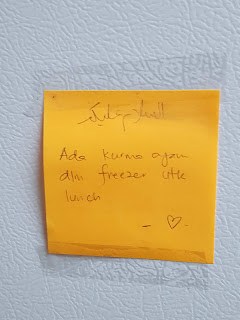 السلام عليكم
Ada kurma ayam
dlm freezer utk
lunch
- ♡-